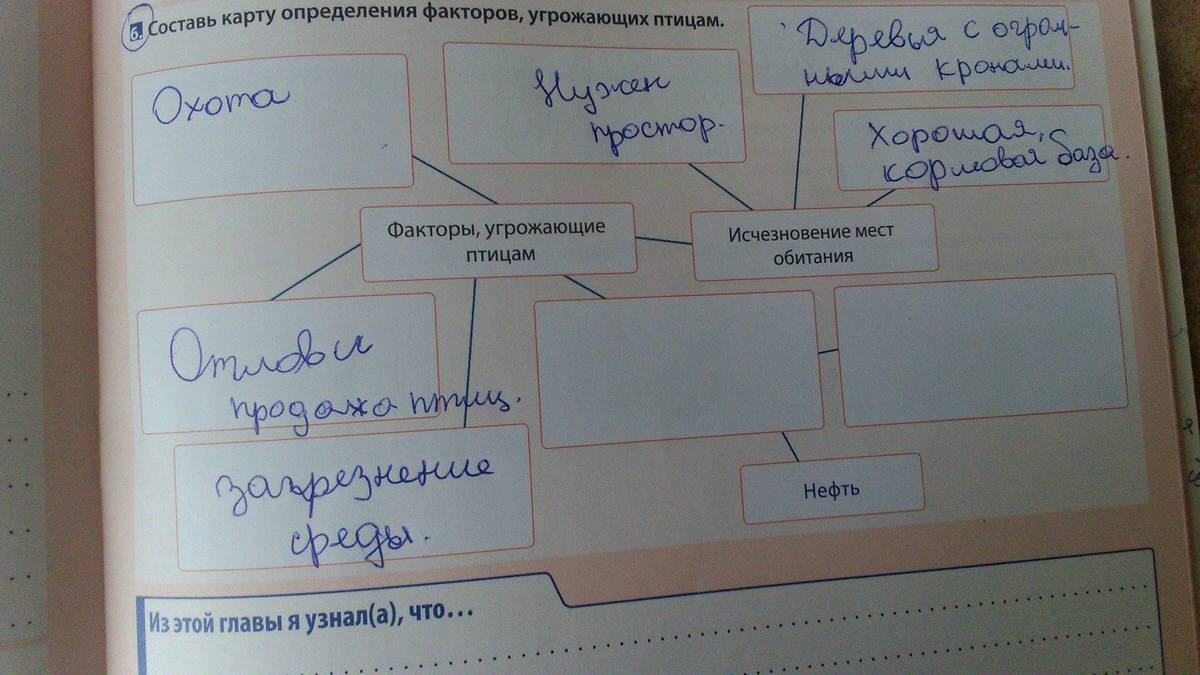 6. Составь карту определения факторов, угрожающих птицам.
Охота
Нужен
простор.
Деревья с огром-
ными кронами.
Хорошая,
кормовая база.
Факторы, угрожающие
птицам
Исчезновение мест
обитания
Отлов и
продажа птиц.
загрезнение
среды.
Нефть
Из этой главы я узнал(а), что...